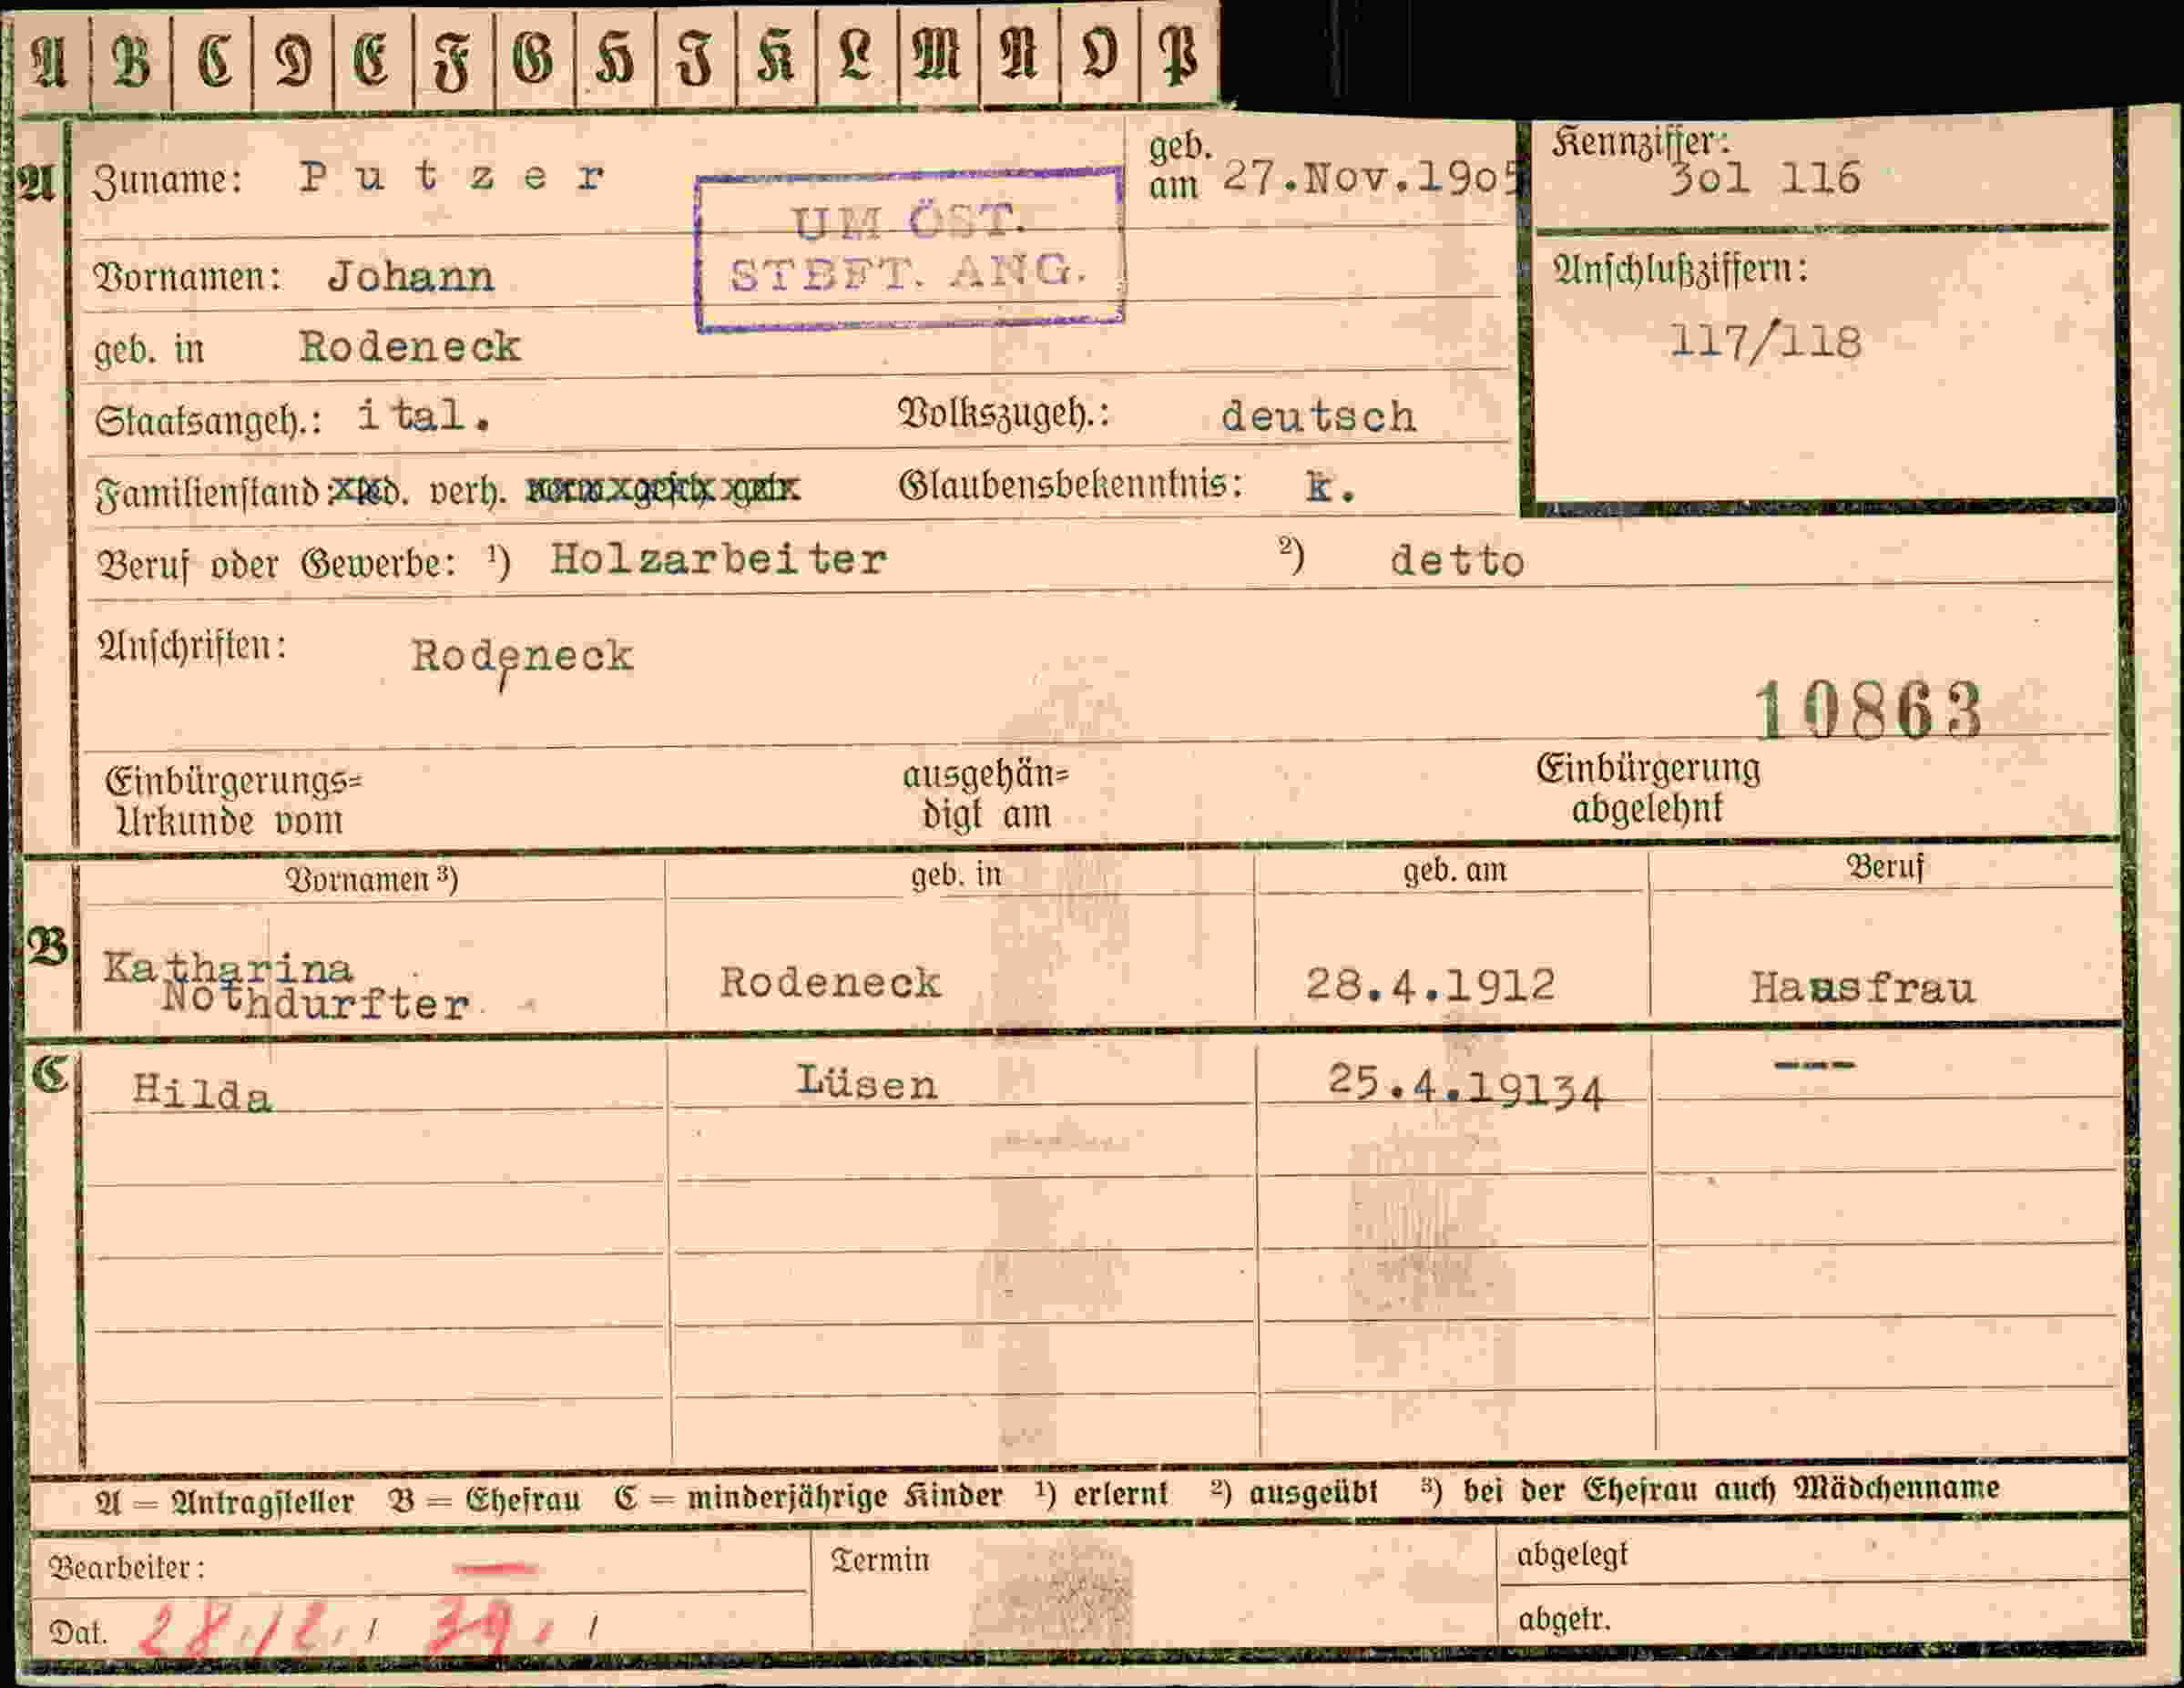 A B C D E F G H I K L M N O P
A Zuname: Putzer geb. am 27.Nov.1905 Kennziffer: 3o1 116
UM ÖST.
STBFT. ANG.
Vornamen: Johann Anschlußziffern:
117/118
geb. in Rodeneck
Staatsangeh.: ital. Volkszugeh.: deutsch
Familienstand: led. verh. verw. gesch. getr. Glaubensbekenntnis: k.
Beruf oder Gewerbe: ¹) Holzarbeiter ²) detto
Anschriften: Rodeneck
10863
Einbürgerungs= ausgehän= Einbürgerung
Urkunde vom digt am abgelehnt
Vornamen ³) geb. in geb. am Beruf
B Katharina
Nothdurfter Rodeneck 28.4.1912 Hausfrau
C Hilda Lüsen 25.4.19134 ---
A = Antragsteller B = Ehefrau C = minderjährige Kinder ¹) erlernt ²) ausgeübt ³) bei der Ehefrau auch Mädchenname
Bearbeiter: — Termin abgelegt
Dat. 28.12. / 39. / abgetr.